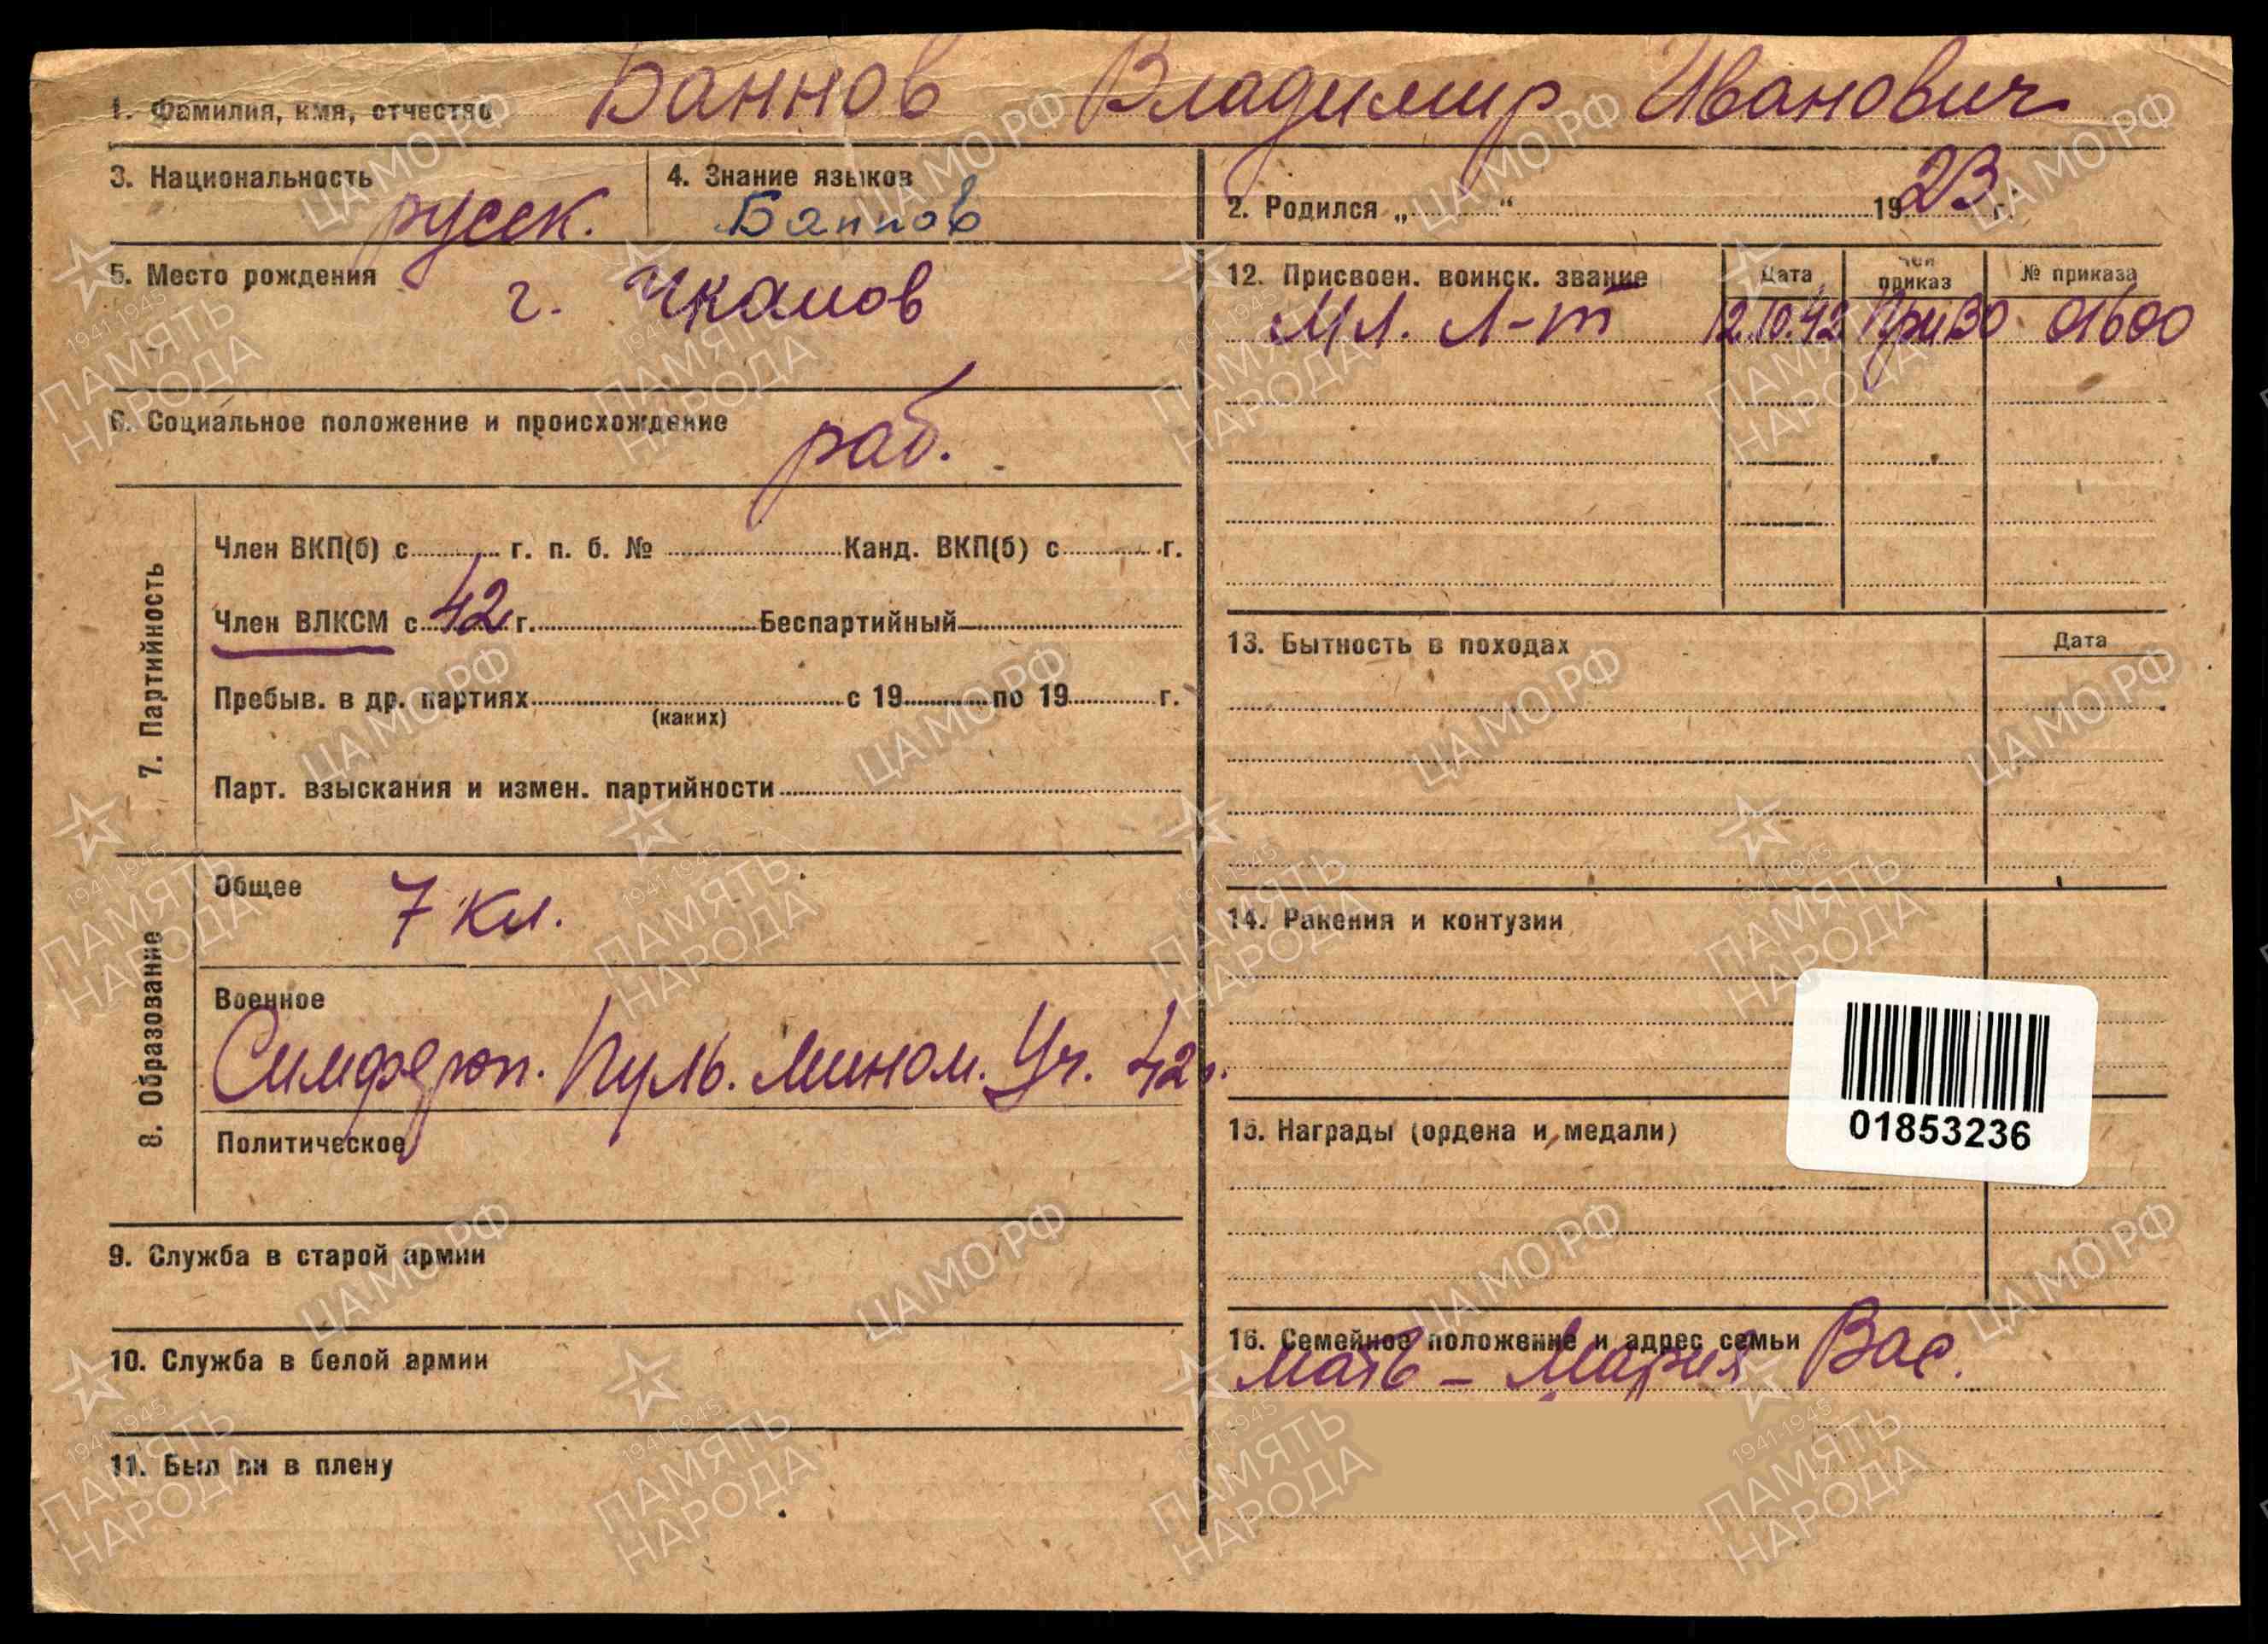 1. Фамилия, имя, отчество Баннов Владимир Иванович
3. Национальность русск.
4. Знание языков
Баннов
2. Родился „ “ 1923 г.
5. Место рождения г. Чкалов
6. Социальное положение и происхождение раб.
7. Партийность
Член ВКП(б) с г. п. б. № Канд. ВКП(б) с г.
Член ВЛКСМ с 42 г. Беспартийный
Пребыв. в др. партиях с 19 по 19 г.
(каких)
Парт. взыскания и измен. партийности
8. Образование
Общее 7 кл.
Военное
Симфероп. Пуль. Мином. Уч. 42 г.
Политическое
9. Служба в старой армии
10. Служба в белой армии
11. Был ли в плену
12. Присвоен. воинск. звание Дата Чей приказ № приказа
Мл. л-т 12.10.42 ПриВО 01600
13. Бытность в походах Дата
14. Ранения и контузии
01853236
15. Награды (ордена и медали)
16. Семейное положение и адрес семьи
мать – Мария Вас.
ЦАМО РФ
1941-1945
ПАМЯТЬ
НАРОДА